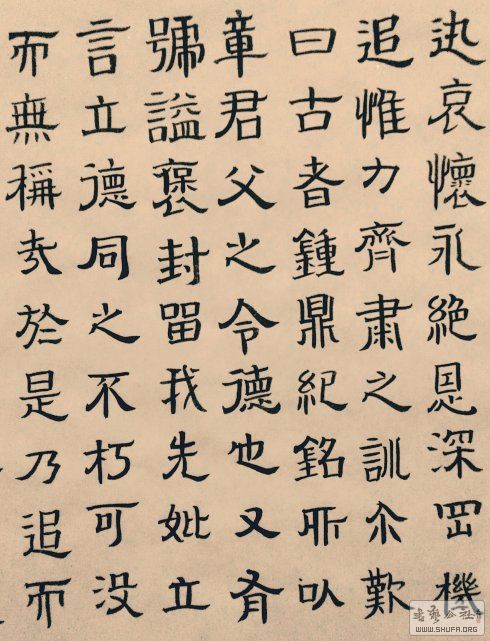 哀懷永絕恩深罔機
追惟力齊肅之訓尒歎
曰古者鍾鼎紀銘所以
章君父之令德也又有
號謚褒封留我先妣立
言立德同之不朽可没
而無稱哉於是乃追而
書藝公社
WWW.SHUFA.ORG